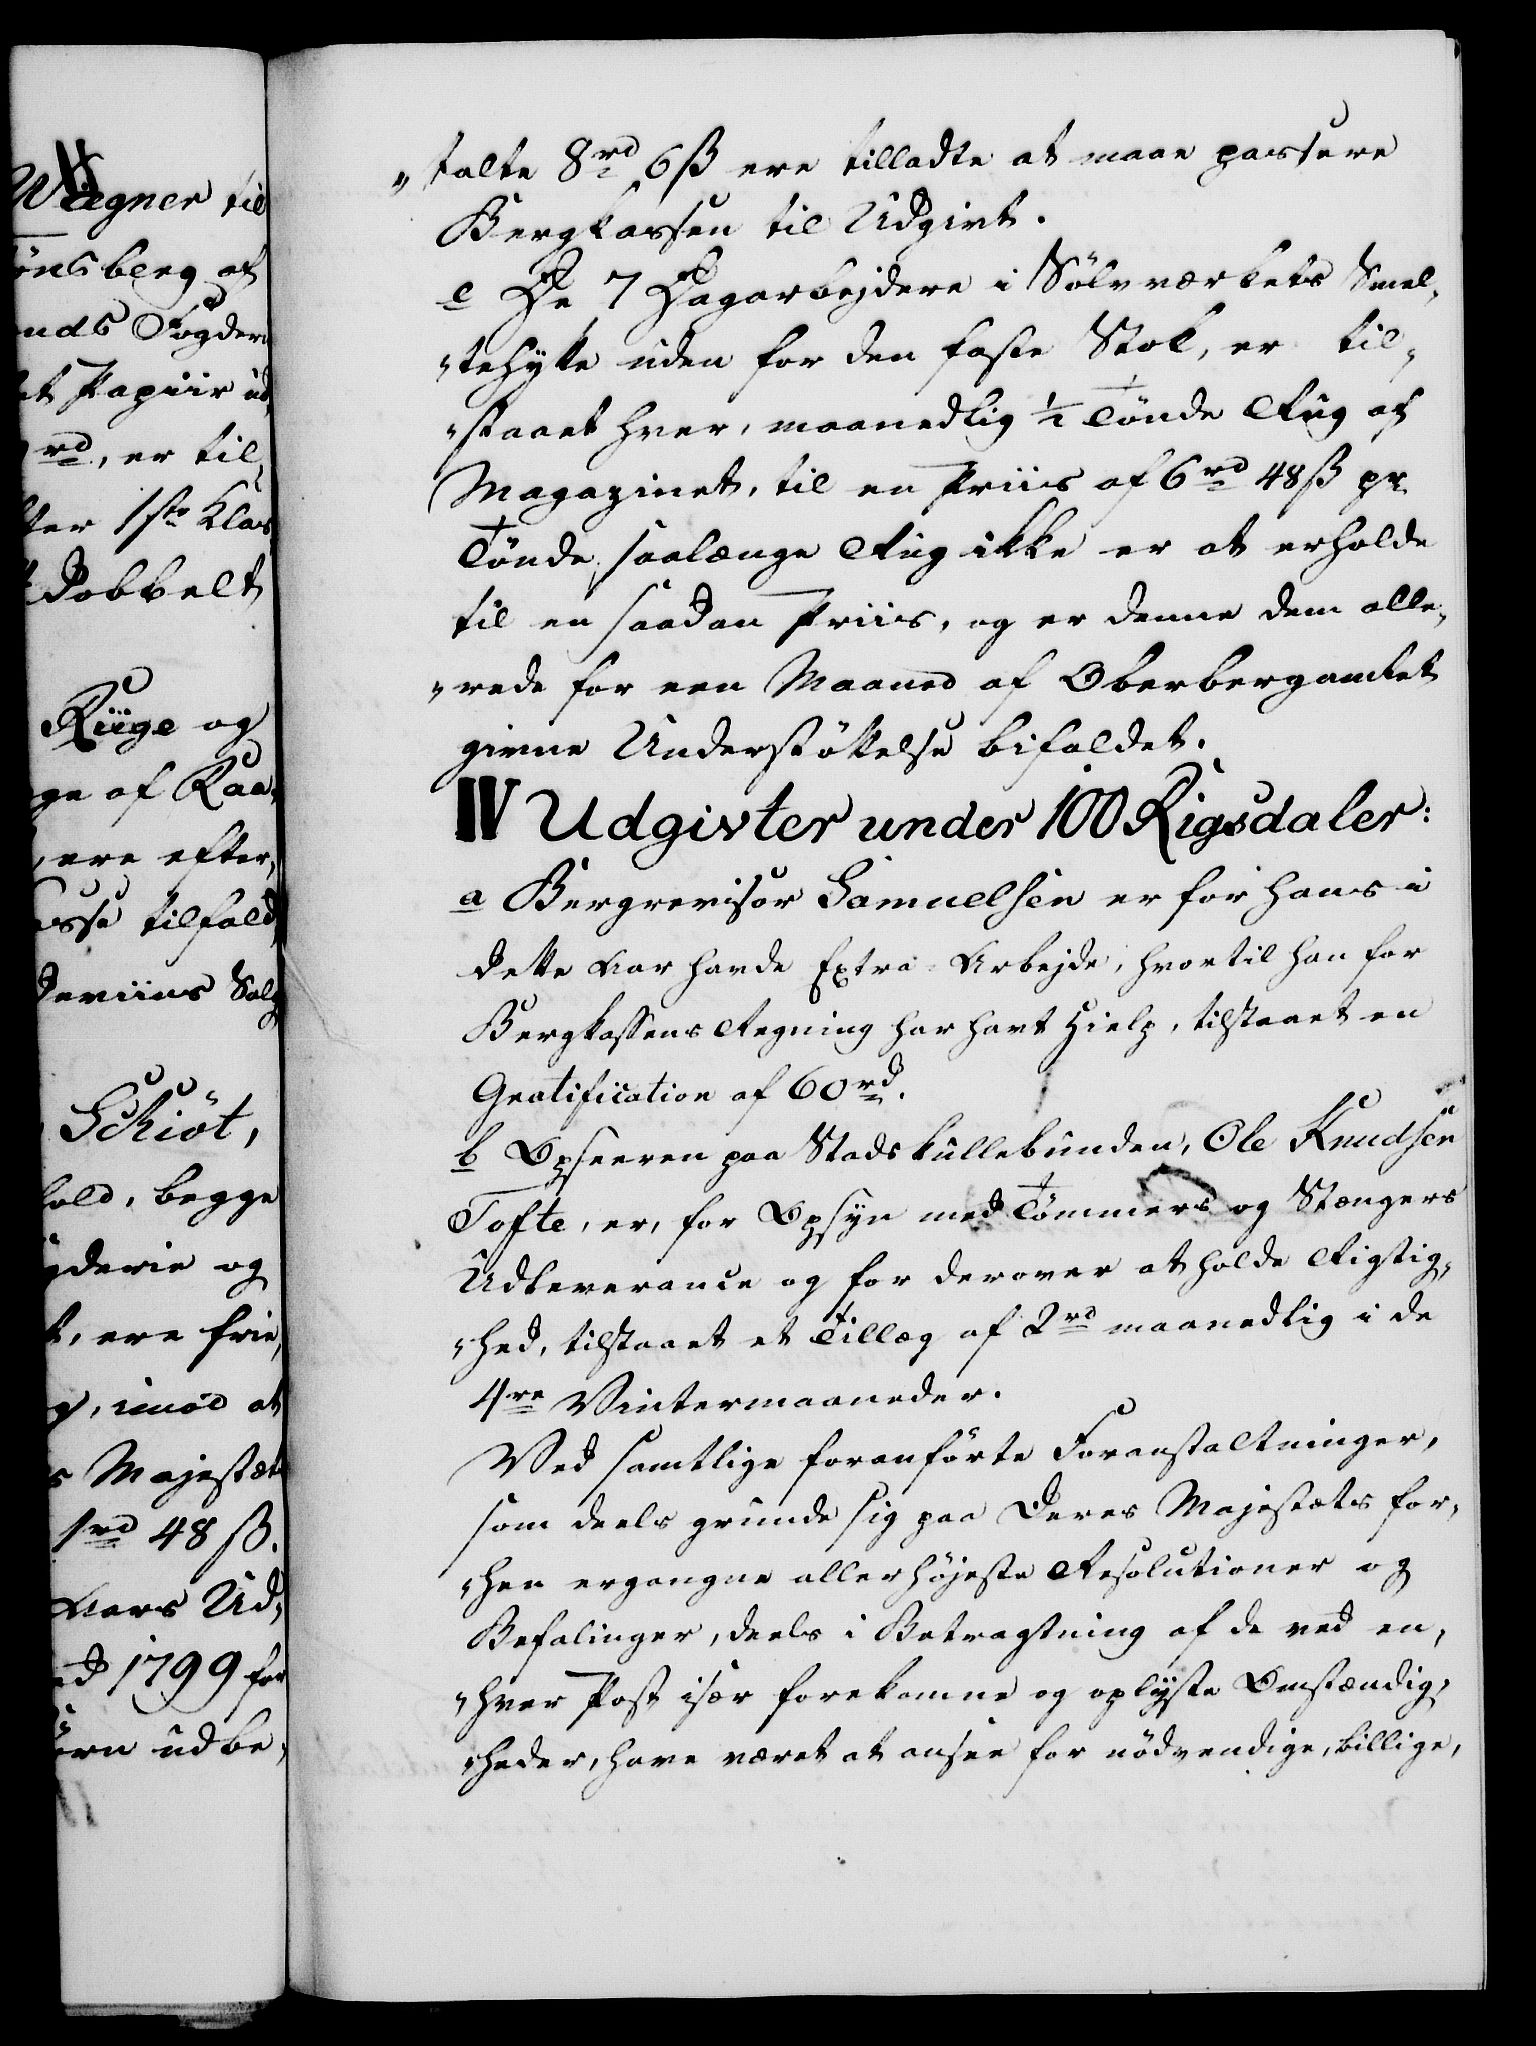 Wægner til
önsberg af
nds Fogder
et Papiir ud
rd, er til,
ter 1ste Klas
Dobbelt
Riige og
ge af Raa,
, ere efter,
asse tilfald
Deviins Salg
Schiöt,
hold, begge
gderie og
t, ere frie,
g, imod at
s Majestæt
1rd 48 ß.
Aars Ud,
ed 1799 for
örn udbe,
„talte 8rd 6ß ere tilladte at maae passere
Bergkassen til Udgivt.
e De 7 Dagarbejdere i Sölvværkets Smel,
„tehytte uden for den faste Stok, er til,
„staaet hver, maanedlig ½ Tönde Rug af
Magazinet, til en Priis af 6rd 48ß pr
Tönde, saalænge Rug ikke er at erholde
til en saadan Priis, og er denne dem alle,
„rede for een Maaned af Oberbergamtet
givne Understöttelse bifaldet.
IV Udgivter under 100 Rigsdaler:
a Bergrevisor Samuelsen er for hans i
dette Aar havde Extra-Arbejde, hvortil han for
Bergkassens Regning har havt Hielp, tilstaaet en
Gratification af 60rd.
b Opseeren paa Stadskullebunden, Ole Knudsen
Tofte, er, for Opsyn med Tömmers og Stængers
Udleverance og for derover at holde Rigtig,
„hed, tilstaaet et Tillæg af 2rd maanedlig i de
4re Vintermaaneder.
Ved samtlige foranförte Foranstaltninger,
som deels grunde sig paa Deres Majestæts for,
„hen ergangne allerhöjeste Resolutioner og
Befalinger, deels i Betragtning af de ved en,
„hver Post især forekomne og oplyste Omstændig,
„heder, have været at ansee for nödvendige, billige,